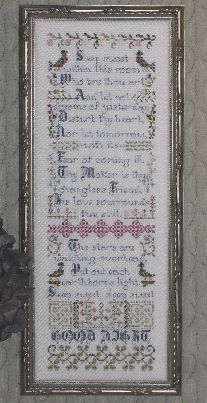 Sleep sweet
within this room
Who ere thou art
And let no
dreams of yesterday
Disturb thy heart,
Nor let tomorrow
with its
Fear of coming ill.
Thy Maker is thy
changeless Friend,
His love surrounds
thee still.
The stars are
watching overhead
Put out each
earthborne light
Sleep sweet, sleep sweet
GOOD NIGHT